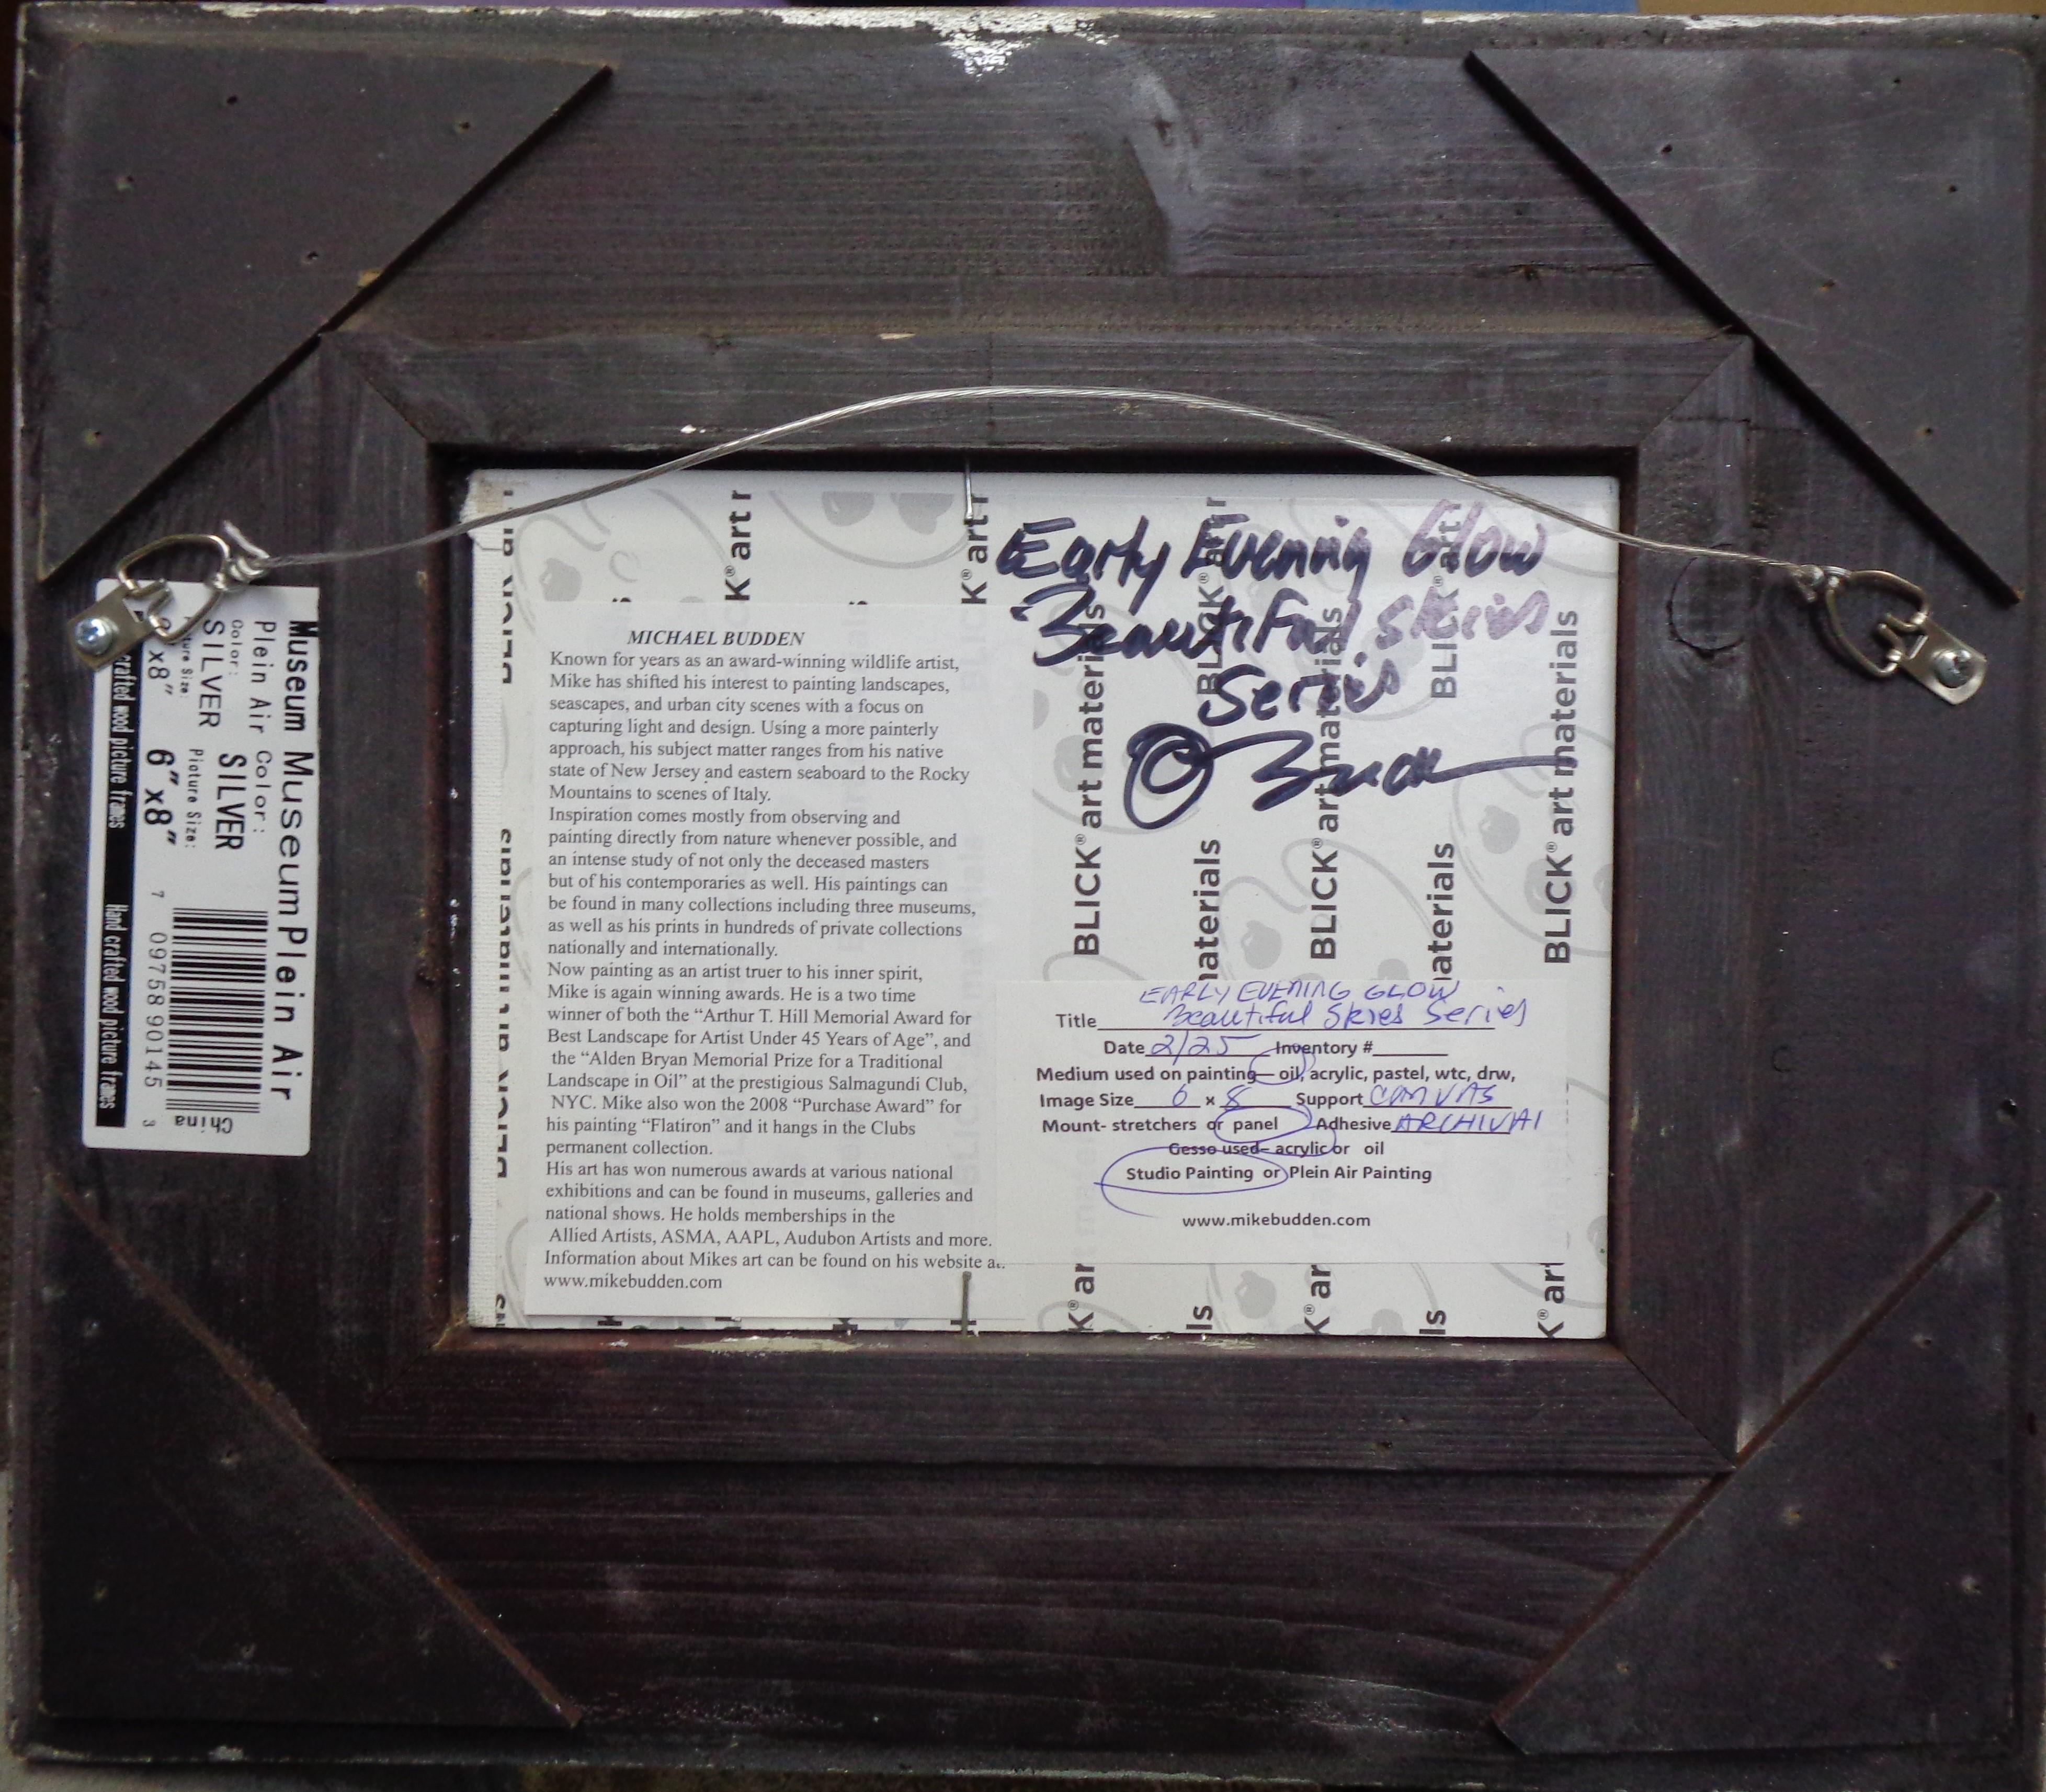 Early Evening Glow
Beautiful Skies
Series
MICHAEL BUDDEN
Known for years as an award-winning wildlife artist,
Mike has shifted his interest to painting landscapes,
seascapes, and urban city scenes with a focus on
capturing light and design. Using a more painterly
approach, his subject matter ranges from his native
state of New Jersey and eastern seaboard to the Rocky
Mountains to scenes of Italy.
Inspiration comes mostly from observing and
painting directly from nature whenever possible, and
an intense study of not only the deceased masters
but of his contemporaries as well. His paintings can
be found in many collections including three museums,
as well as his prints in hundreds of private collections
nationally and internationally.
Now painting as an artist truer to his inner spirit,
Mike is again winning awards. He is a two time
winner of both the “Arthur T. Hill Memorial Award for
Best Landscape for Artist Under 45 Years of Age”, and
the “Alden Bryan Memorial Prize for a Traditional
Landscape in Oil” at the prestigious Salmagundi Club,
NYC. Mike also won the 2008 “Purchase Award” for
his painting “Flatiron” and it hangs in the Clubs
permanent collection.
His art has won numerous awards at various national
exhibitions and can be found in museums, galleries and
national shows. He holds memberships in the
Allied Artists, ASMA, AAPL, Audubon Artists and more.
Information about Mikes art can be found on his website
www.mikebudden.com
EARLY EVENING GLOW
Title Beautiful Skies Series
Date 2/25 Inventory #
Medium used on painting— oil, acrylic, pastel, wtc, drw,
Image Size 6 x 8 Support CANVAS
Mount- stretchers or panel Adhesive ARCHIVAl
Gesso used- acrylic or oil
Studio Painting or Plein Air Painting
www.mikebudden.com
BLICK® art materials
BLICK® art materials
BLICK® art materials
Museum Museum Plein Air
Plein Air Color:
Color: SILVER
SILVER Picture Size:
x8" 6" x8"
crafted wood picture frames Hand crafted wood picture frames
7 09758 90145 3
China